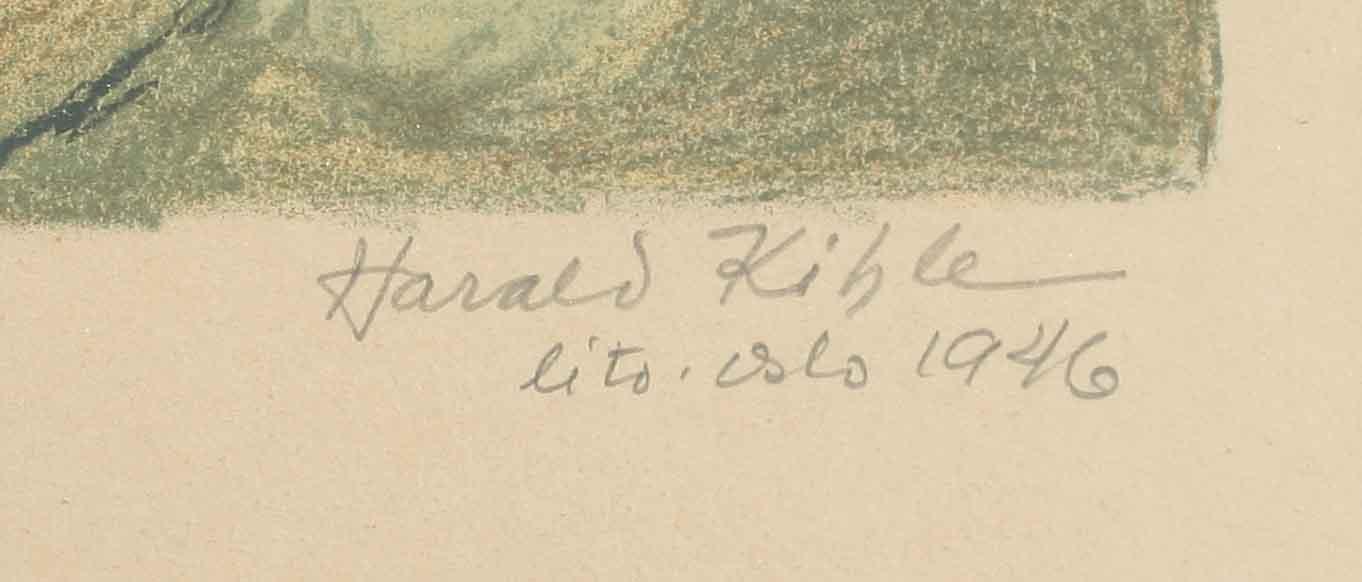 Harald Kihle
lito. Oslo 1946